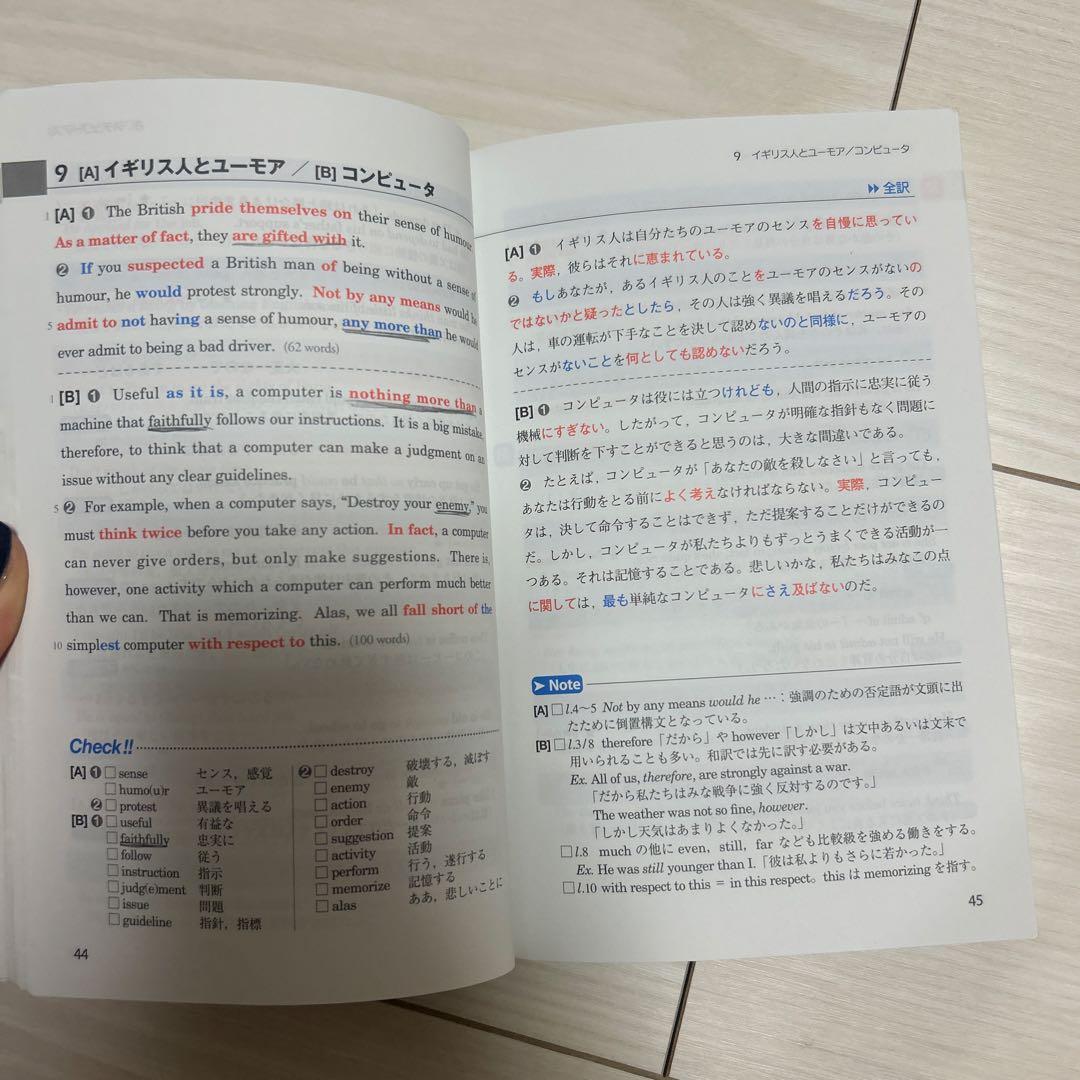 9 [A] イギリス人とユーモア / [B] コンピュータ
1 [A] ❶ The British pride themselves on their sense of humour.
As a matter of fact, they are gifted with it.
❷ If you suspected a British man of being without a sense of
humour, he would protest strongly. Not by any means would he
5 admit to not having a sense of humour, any more than he would
ever admit to being a bad driver. (62 words)
1 [B] ❶ Useful as it is, a computer is nothing more than a
machine that faithfully follows our instructions. It is a big mistake,
therefore, to think that a computer can make a judgment on an
issue without any clear guidelines.
5 ❷ For example, when a computer says, “Destroy your enemy,” you
must think twice before you take any action. In fact, a computer
can never give orders, but only make suggestions. There is,
however, one activity which a computer can perform much better
than we can. That is memorizing. Alas, we all fall short of the
10 simplest computer with respect to this. (100 words)
Check!!
[A] ❶ □ sense センス，感覚
□ humo(u)r ユーモア
❷ □ protest 異議を唱える
[B] ❶ □ useful 有益な
□ faithfully 忠実に
□ follow 従う
□ instruction 指示
□ judg(e)ment 判断
□ issue 問題
□ guideline 指針，指標
❷ □ destroy 破壊する，滅ぼす
□ enemy 敵
□ action 行動
□ order 命令
□ suggestion 提案
□ activity 活動
□ perform 行う，遂行する
□ memorize 記憶する
□ alas ああ，悲しいことに
44
9 イギリス人とユーモア／コンピュータ
全訳
[A] ❶ イギリス人は自分たちのユーモアのセンスを自慢に思ってい
る。実際，彼らはそれに恵まれている。
❷ もしあなたが，あるイギリス人のことをユーモアのセンスがないの
ではないかと疑ったとしたら，その人は強く異議を唱えるだろう。その
人は，車の運転が下手なことを決して認めないのと同様に，ユーモアの
センスがないことを何としても認めないだろう。
[B] ❶ コンピュータは役には立つけれども，人間の指示に忠実に従う
機械にすぎない。したがって，コンピュータが明確な指針もなく問題に
対して判断を下すことができると思うのは，大きな間違いである。
❷ たとえば，コンピュータが「あなたの敵を殺しなさい」と言っても，
あなたは行動をとる前によく考えなければならない。実際，コンピュー
タは，決して命令することはできず，ただ提案することだけができるの
だ。しかし，コンピュータが私たちよりもずっとうまくできる活動が一
つある。それは記憶することである。悲しいかな，私たちはみなこの点
に関しては，最も単純なコンピュータにさえ及ばないのだ。
Note
[A] □ l.4~5 Not by any means would he …：強調のための否定語が文頭に出
たために倒置構文となっている。
[B] □ l.3/8 therefore「だから」や however「しかし」は文中あるいは文末で
用いられることも多い。和訳では先に訳す必要がある。
Ex. All of us, therefore, are strongly against a war.
「だから私たちはみな戦争に強く反対するのです。」
The weather was not so fine, however.
「しかし天気はあまりよくなかった。」
□ l.8 much の他に even，still，far なども比較級を強める働きをする。
Ex. He was still younger than I.「彼は私よりもさらに若かった。」
□ l.10 with respect to this = in this respect. this は memorizing を指す。
45